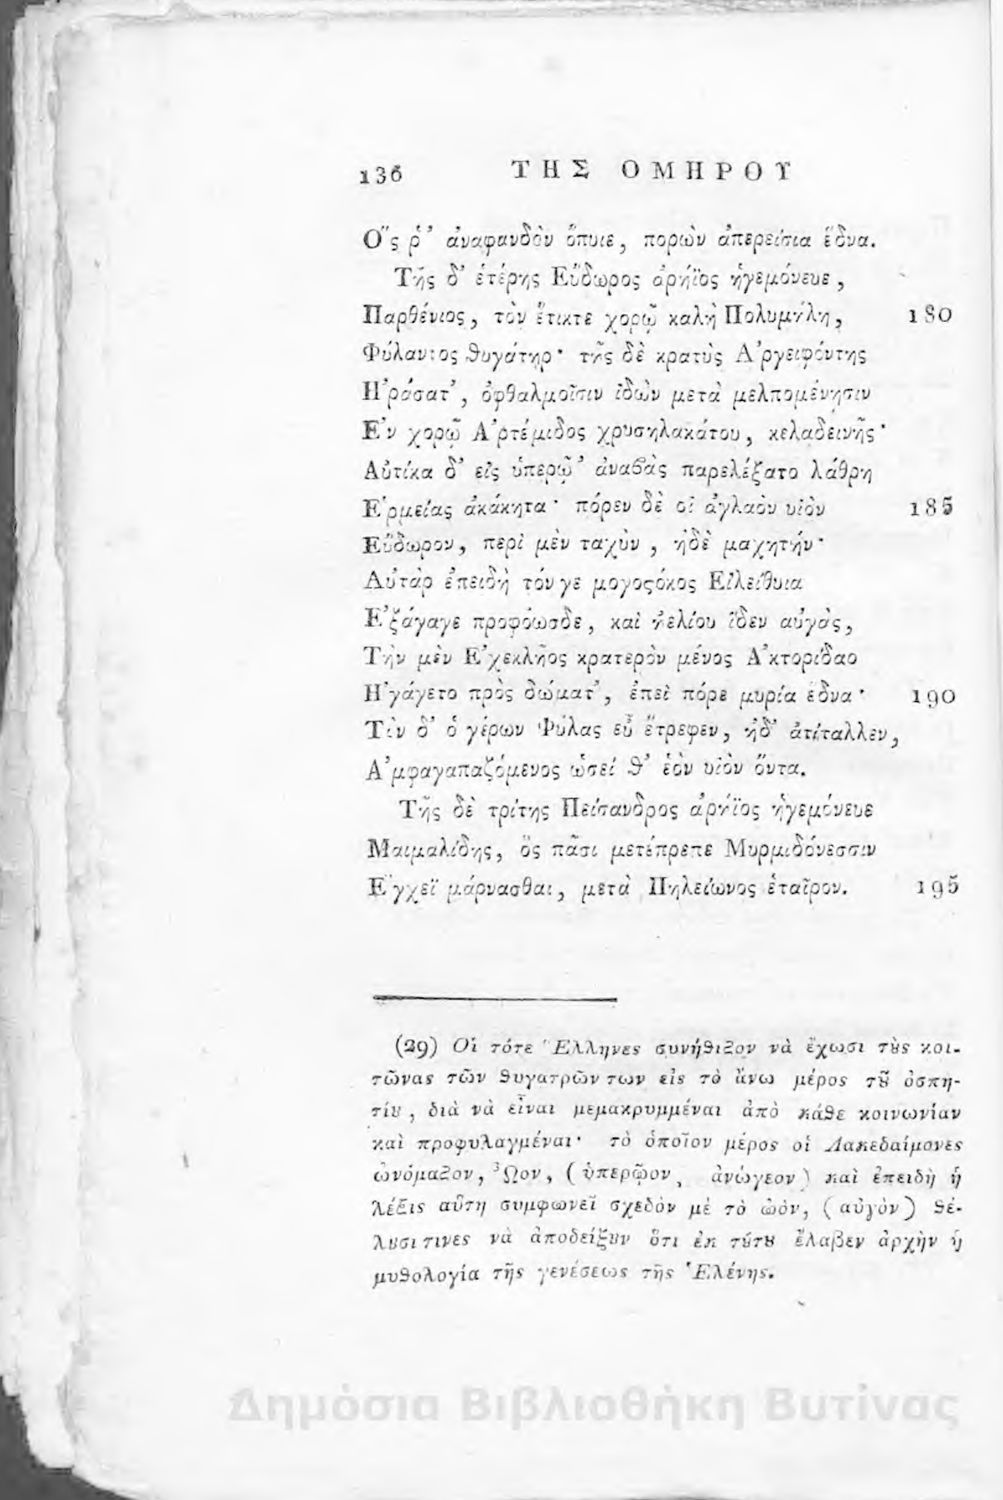 136 ΤΗΣ ΟΜΗΡΟΥ
Ο῞ς ῥ᾽ ἀναφανδὸν ὄπυιε, πορὼν ἀπερείσια ἕδνα.
Τῆς δ᾽ ἑτέρης Εὔδωρος ἀρήϊος ἡγεμόνευε,
Παρθένιος, τὸν ἔτικτε χορῷ καλὴ Πολυμήλη, 180
Φύλαντος ϑυγάτηρ· τῆς δὲ κρατὺς Α᾽ργειφόντης
Η᾽ράσατ᾽, ὀφθαλμοῖσιν ἰδὼν μετὰ μελπομένῃσιν
Ε᾽ν χορῷ Α᾽ρτέμιδος χρυσηλακάτου, κελαδεινῆς·
Αὐτίκα δ᾽ εἰς ὑπερῷ᾽ ἀναϐὰς παρελέξατο λάθρη
Ε῾ρμείας ἀκάκητα· πόρεν δὲ οἱ ἀγλαὸν υἱὸν 185
Εὔδωρον, περὶ μὲν ταχὺν, ἠδὲ μαχητήν·
Αὐτὰρ ἐπειδὴ τόν γε μογοςόκος Εἰλείθυια
Ε᾽ξάγαγε προφόωσδε, καὶ ἠελίου ἴδεν αὐγὰς,
Τὴν μὲν Ε᾽χεκλῆος κρατερὸν μένος Α᾽κτορίδαο
Η᾽γάγετο πρὸς δώματ᾽, ἐπεὶ πόρε μυρία ἕδνα· 190
Τὸν δ᾽ ὁ γέρων Φύλας εὖ ἔτρεφεν, ἠδ᾽ ἀτίταλλεν,
Α᾽μφαγαπαζόμενος ὡσεί ϑ᾽ ἑὸν υἱὸν ὄντα.
Τῆς δὲ τρίτης Πείσανδρος ἀρήϊος ἡγεμόνευε
Μαιμαλίδης, ὃς πᾶσι μετέπρεπε Μυρμιδόνεσσιν
Ε῎γχεϊ μάρνασθαι, μετὰ Πηλείωνος ἑταῖρον. 195
(29) Οἱ τότε Ἕλληνες συνήϑιζον νὰ ἔχωσι τȣ̀ς κοι-
τῶνας τῶν ϑυγατρῶν των εἰς τὸ ἄνω μέρος τȣ͂ ὀσπη-
τίȣ, διὰ νὰ εἶναι μεμακρυμμέναι ἀπὸ κάϑε κοινωνίαν
καὶ προφυλαγμέναι· τὸ ὁποῖον μέρος οἱ Λακεδαίμονες
ὠνόμαζον, Ὦον, (ὑπερῷον, ἀνώγεον) καὶ ἐπειδὴ ἡ
λέξις αὕτη συμφωνεῖ σχεδὸν μὲ τὸ ὠὸν, (αὐγὸν) ϑέ-
λȣσι τινὲς νὰ ἀποδείξȣν ὅτι ἐκ τȣ́τȣ ἔλαβεν ἀρχὴν ἡ
μυϑολογία τῆς γενέσεως τῆς Ἑλένης.
Δημόσια Βιβλιοθήκη Βυτίνας